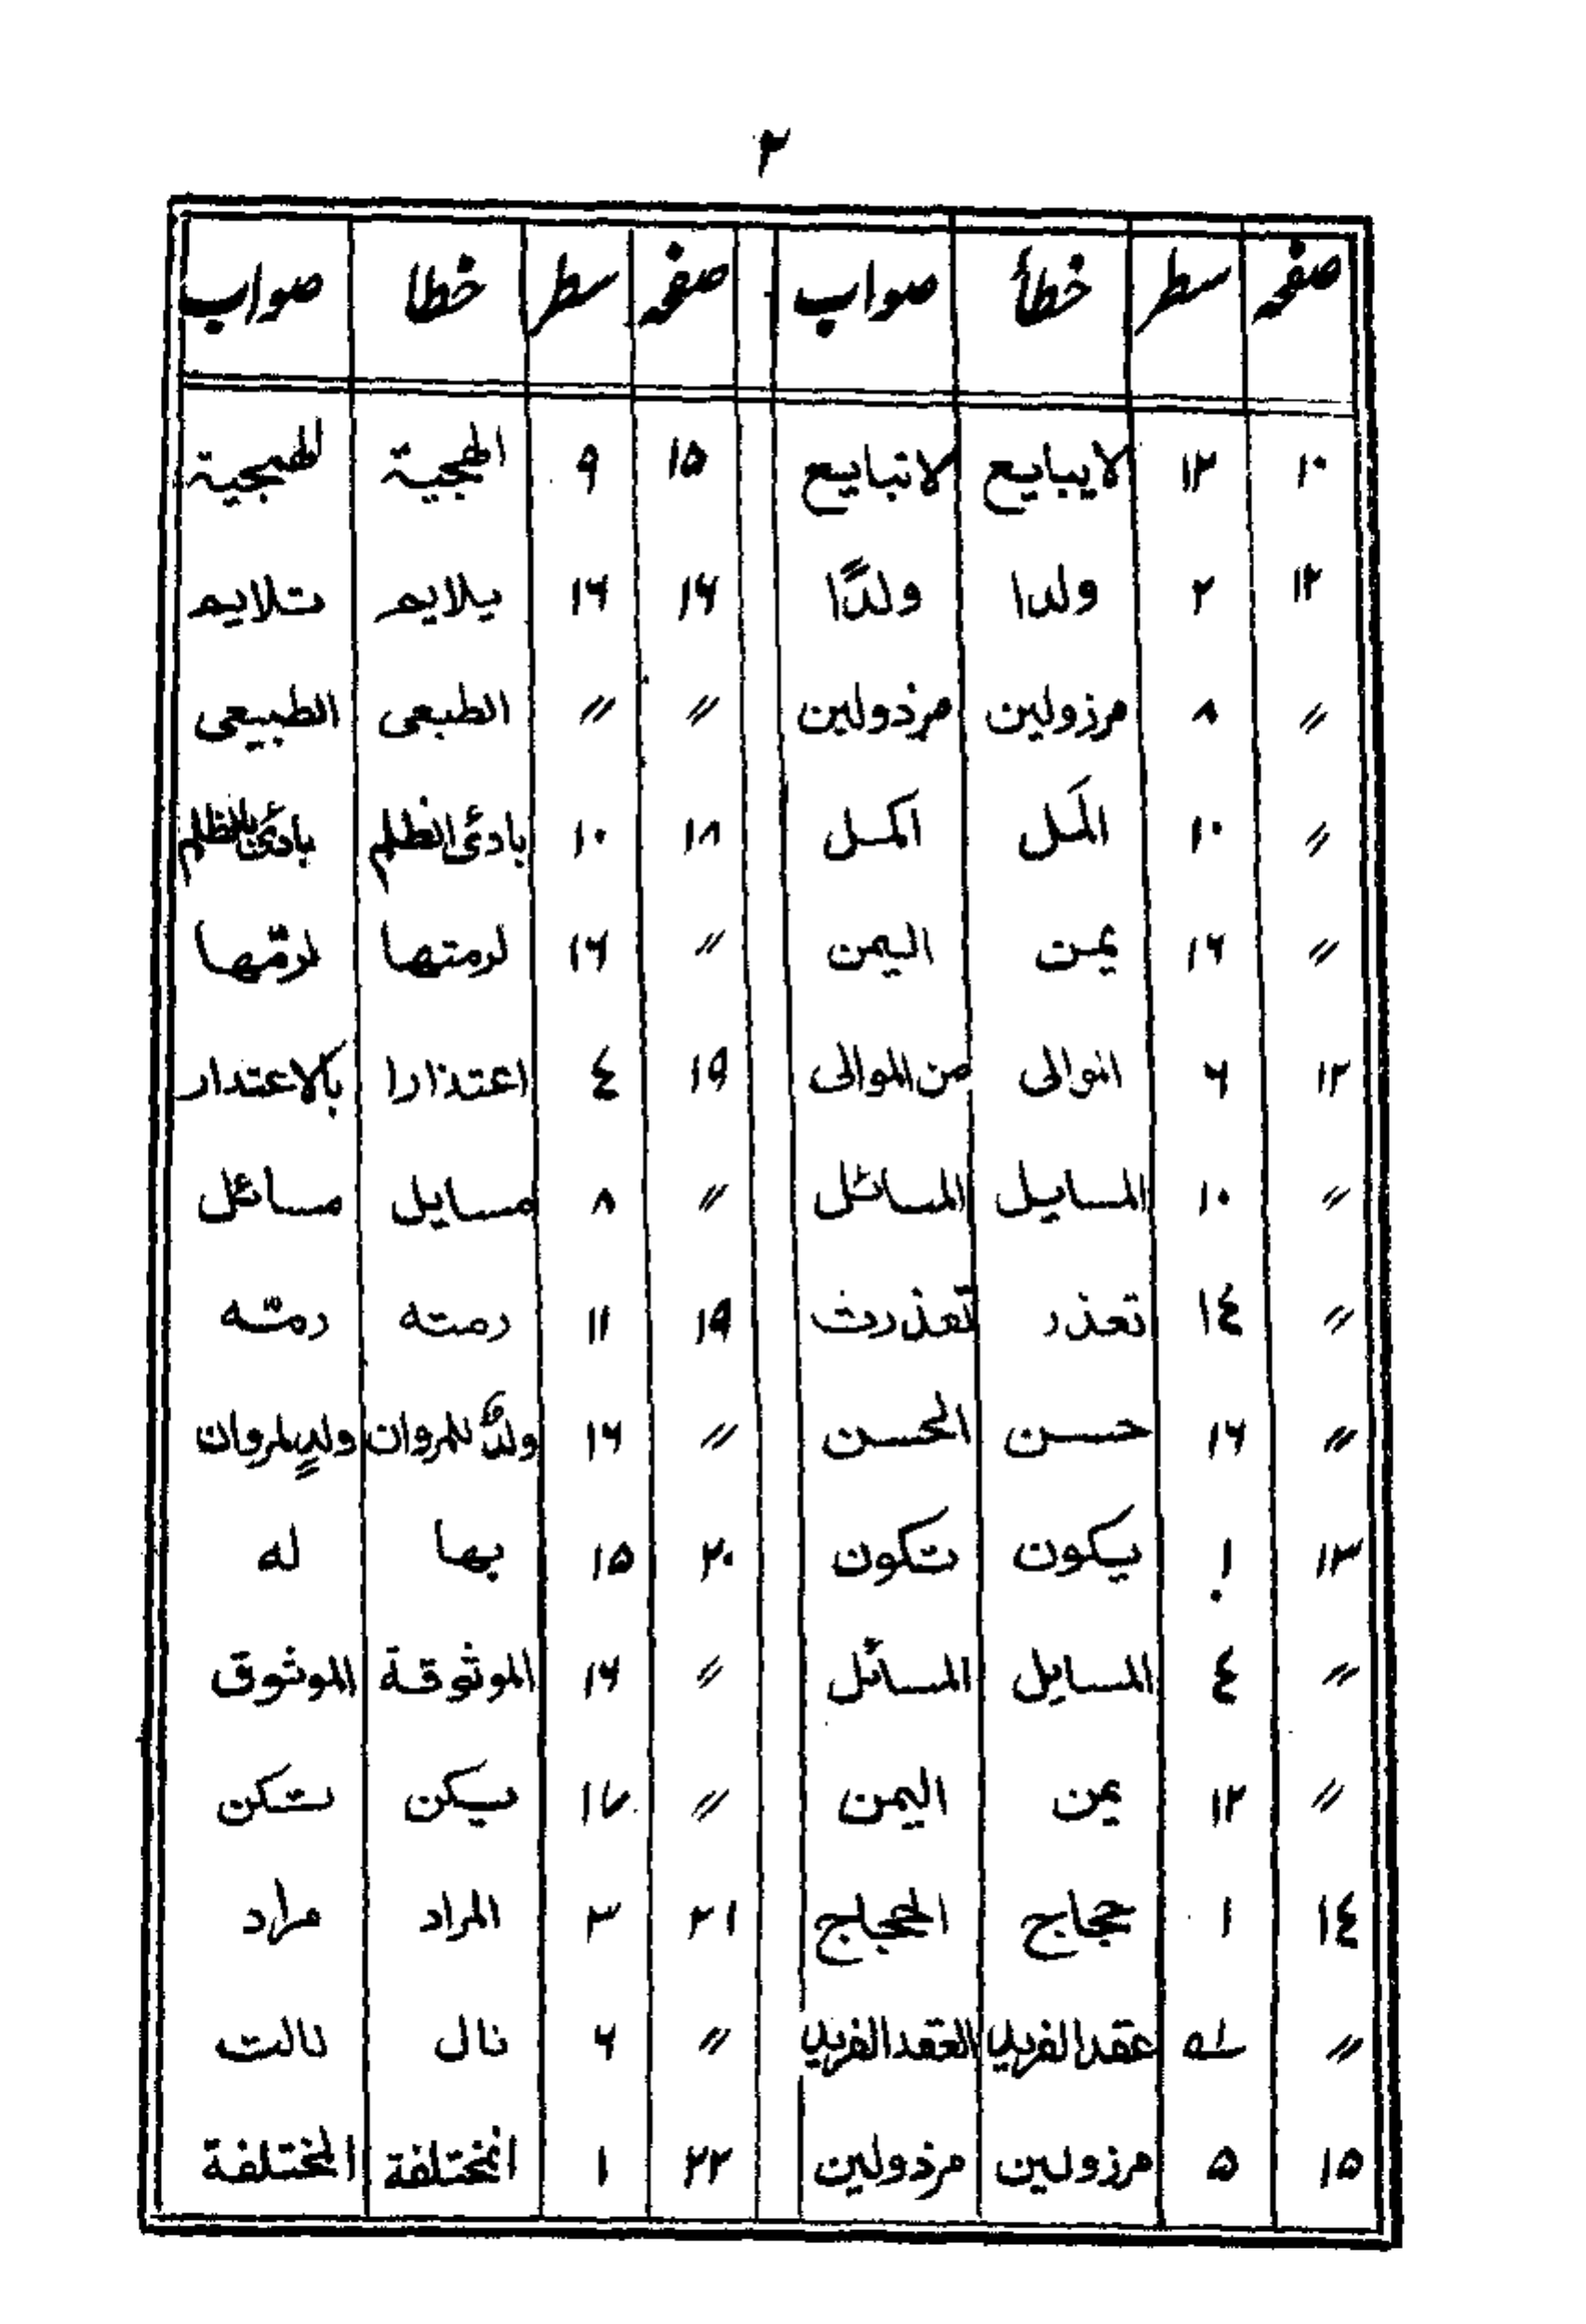 ٢
صفحہ سطر خطأ صواب صفحہ سطر خطا صواب
١٠ ١٣ لايبايع لاتبايع ١٥ ٩ الهجية الهمجية
١٢ ٢ ولدا ولدًا ١٦ ١٦ يلايم تلايم
〃 ٨ مرزولين مرذولين 〃 〃 الطبعى الطبيعى
〃 ١٠ اكمَل اكمل ١٨ ١٠ بادئ الظلم بادئ بالظلم
〃 ١٦ يمن اليمن 〃 ١٦ لرمتها لرمّها
١٢ ٦ الموالى من الموالى ١٩ ٤ اعتذارا بالاعتدار
〃 ١٠ المسايل المسائل 〃 ٨ مسايل مسائل
〃 ١٤ تعذر تعذرت ١٩ ١١ رمته رمّه
〃 ١٦ حسن الحسن 〃 ١٦ ولدٌ للمروان ولدٍ لمروان
١٣ ١ يكون تكون ٢٠ ١٥ بها له
〃 ٤ المسايل المسائل 〃 ١٦ الموثوقة الموثوق
〃 ١٢ يمن اليمن 〃 ١٧ يكن تكن
١٤ ١ حجاج الحجاج ٢١ ٣ المراد مراد
〃 عقد الفريد العقد الفريد 〃 ٦ نال نالت
١٥ ٥ مرزولين مرذولين ٢٢ ١ المختلفة المختلفة